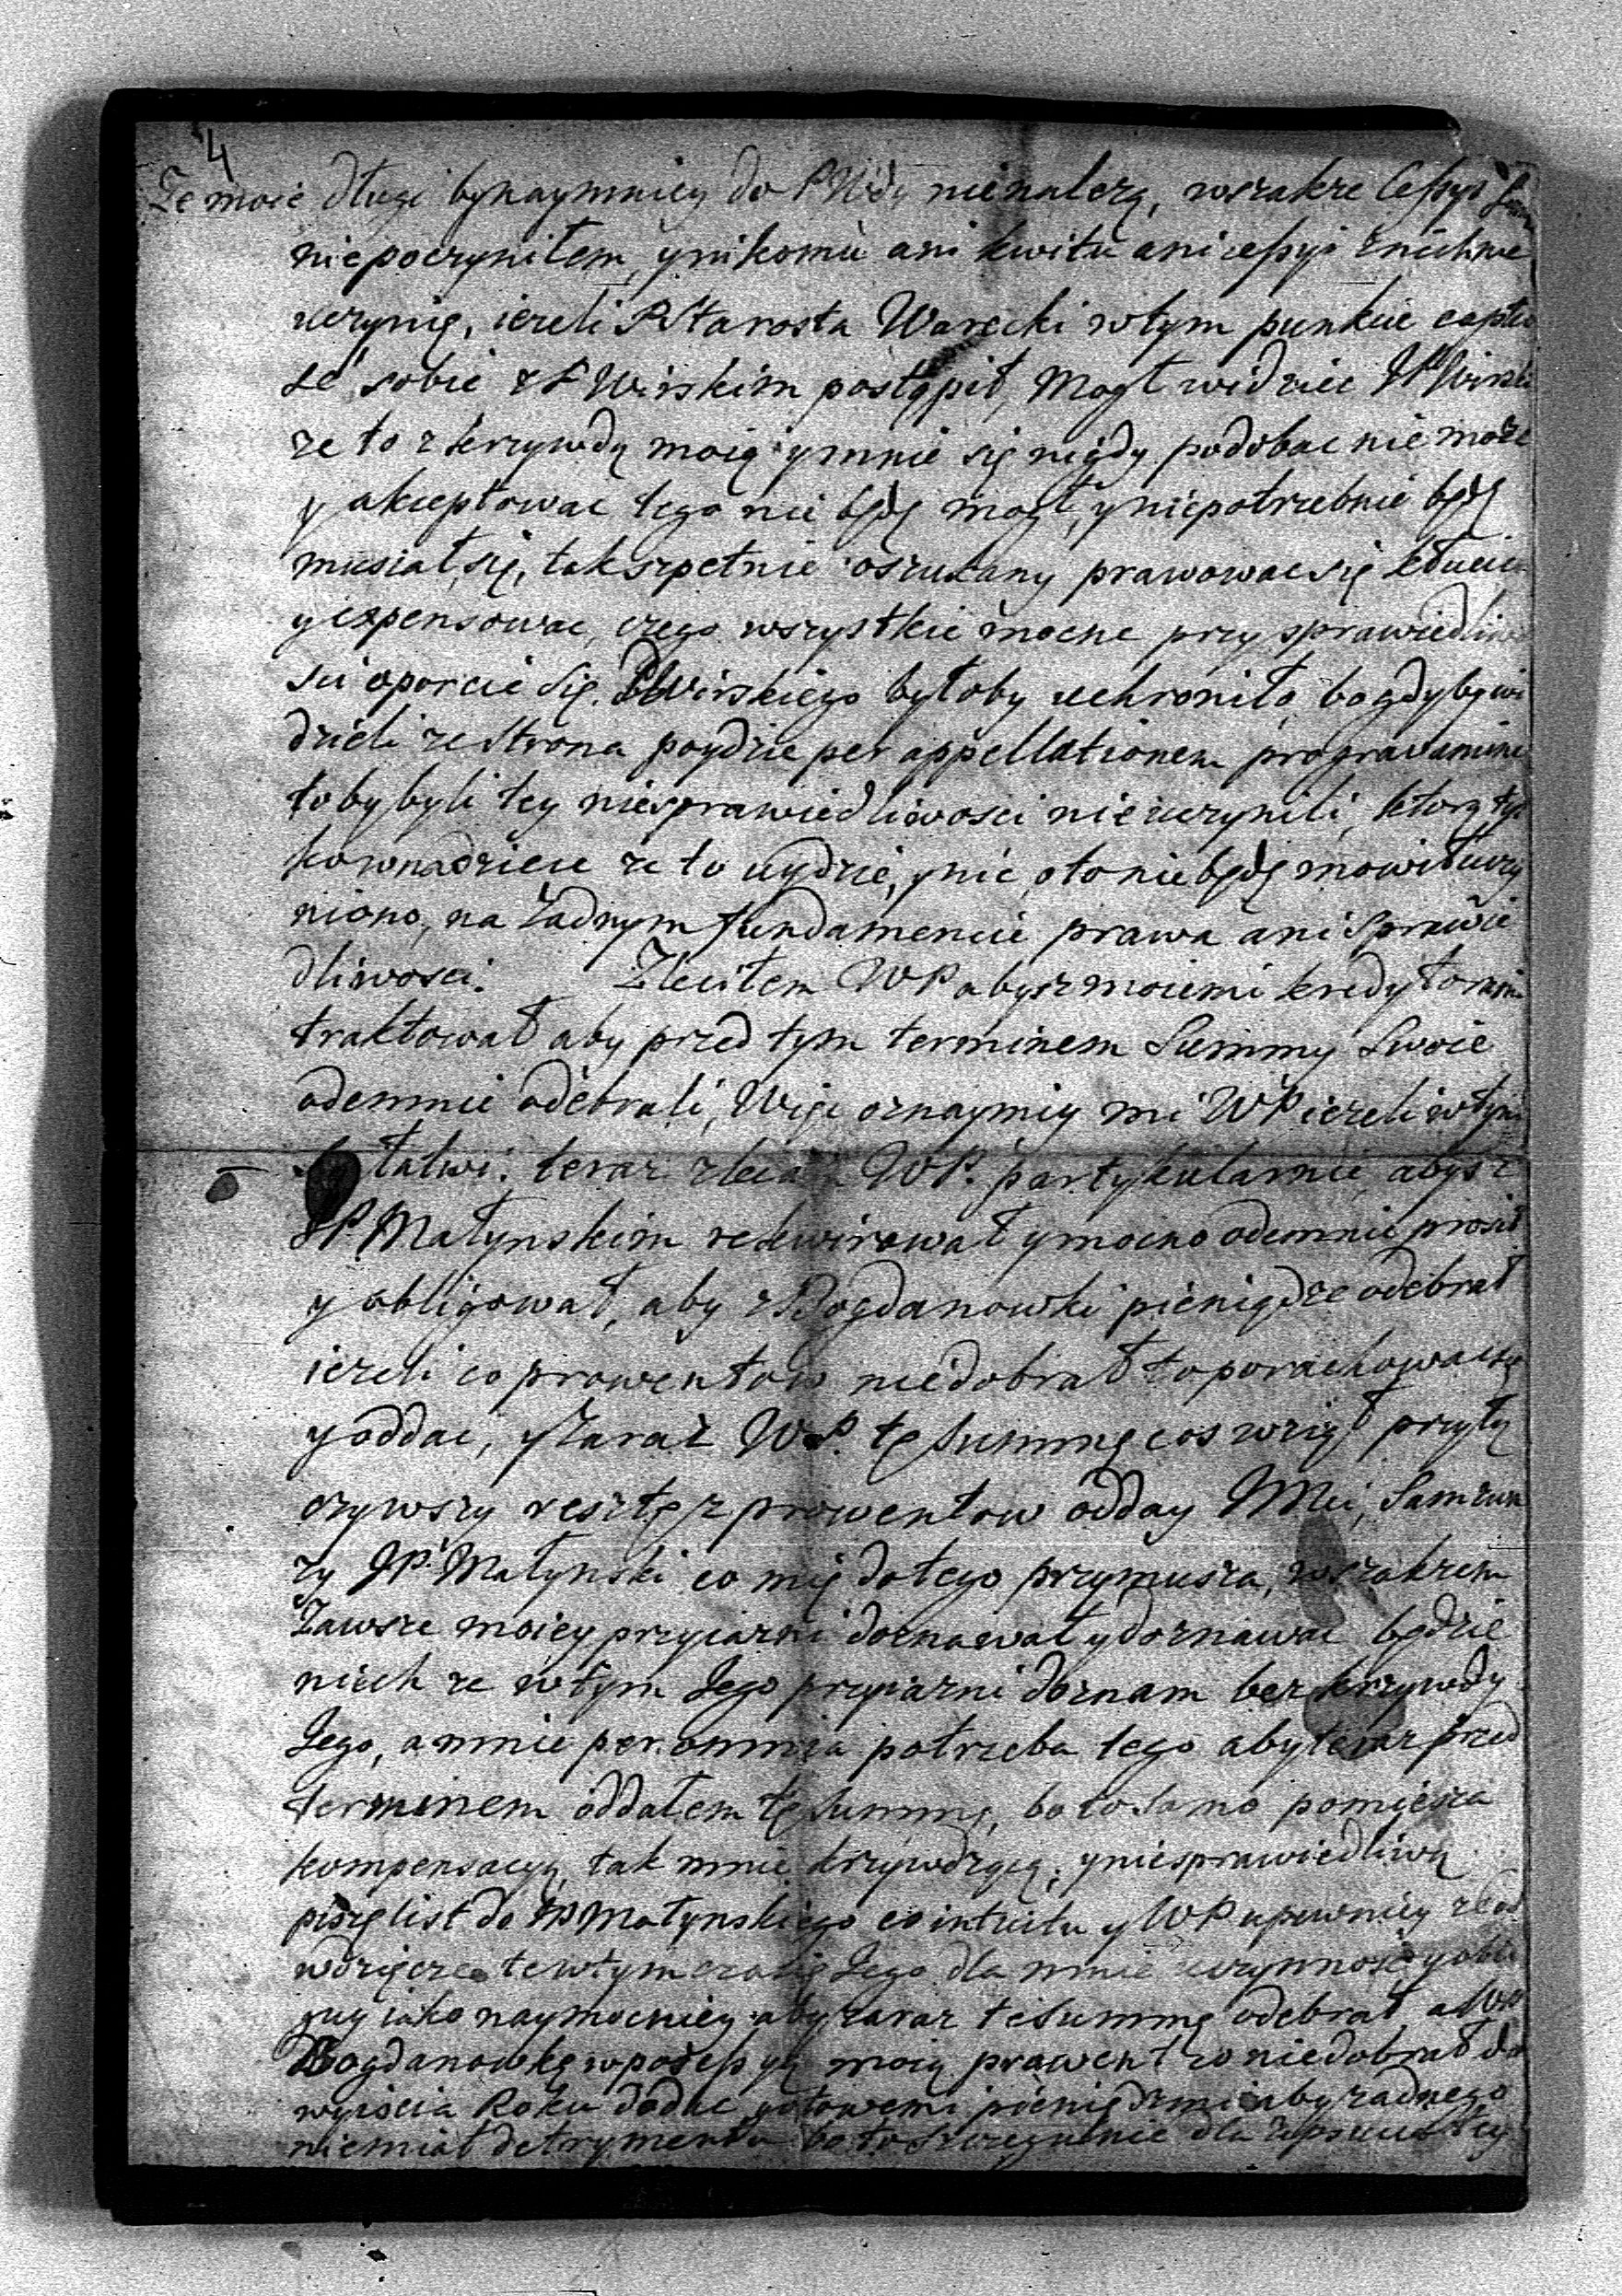 4
Ze moie długi bynaymniey do PWdy nienalezą, wszakze Cessyi
niepoczyniłem, ynikomu ani kwitu ani cessyi znich nie
uczynię, iezeli PStarosta Warecki wtym punkcie
sobie z P Wirskim postąpił, Mogł widziec JP Wirski
ze to z krzywdą moią ymnie się nigdy podobac nie moze
y akceptowac tego nie będę mogł, yniepotrzebnie będę
musiał się, tak szpetnie oszukany prawowac się kłucic
y expensowac, czego wszystkie mocne przy sprawiedliwo
sci oparcie się PWirskiego byłoby uchroniło, bo gdyby wi
dzieli ze strona poydzie per appellationem pro gravamine
toby byli tey niesprawiedliwosci nie uczynili, ktorą tyl
ko wnadzieie ze to uydzie, ynic oto nie będę mowił uczy
niono, na Zadnym fundamencie prawa ani Sprawie
dliwosci. Zleciłem WP abys z moiemi kredytorami
traktował aby przed tym terminem Summy Swoie
odemnie odebrali, Więc oznaymiy mi WP iezeli wtym
łatwi. teraz zlecam WP. partykularnie, abys z
JP. Małynskim rekwirował ymocno odemnie prosił
y obligował, aby z Bogdanowki pieniądze odebrał
iezeli co prowentow niedobrał to porachowac się
y oddac, y Zaraz WP. tę Summę cos wziął przyłą
czywszy resztę z prowentow odday Mu, Sam zwa
zy JP. Małynski co mię do tego przymusza, wszakzem
Zawsze moiey przyiazni doznawał y doznawac będzie
niech ze wtym Jego przyiazni doznam bez krzywdy
Jego, a mnie per omnia potrzeba tego abym teraz przed
terminem oddałem tę Summę, bo to Samo pomięsza
kompensacyą, tak mnie krzywdzącą, y niesprawiedliwą
piszę list do JP Małynskiego eo intuitu y WP upewniy ze od
wdzięczę te wtym czasie Jego dla mnie uczynnosc y obli
guy iako naymocniey aby zaraz te Summę odebrał, a WP
Bogdanowkę w possessyą moią prowent co niedobrał do
wyiscia Roku dodac gotowemi pieniędzmi aby zadnego
niemiał detrymentu bo to szczegulnie dla zepsucia tey